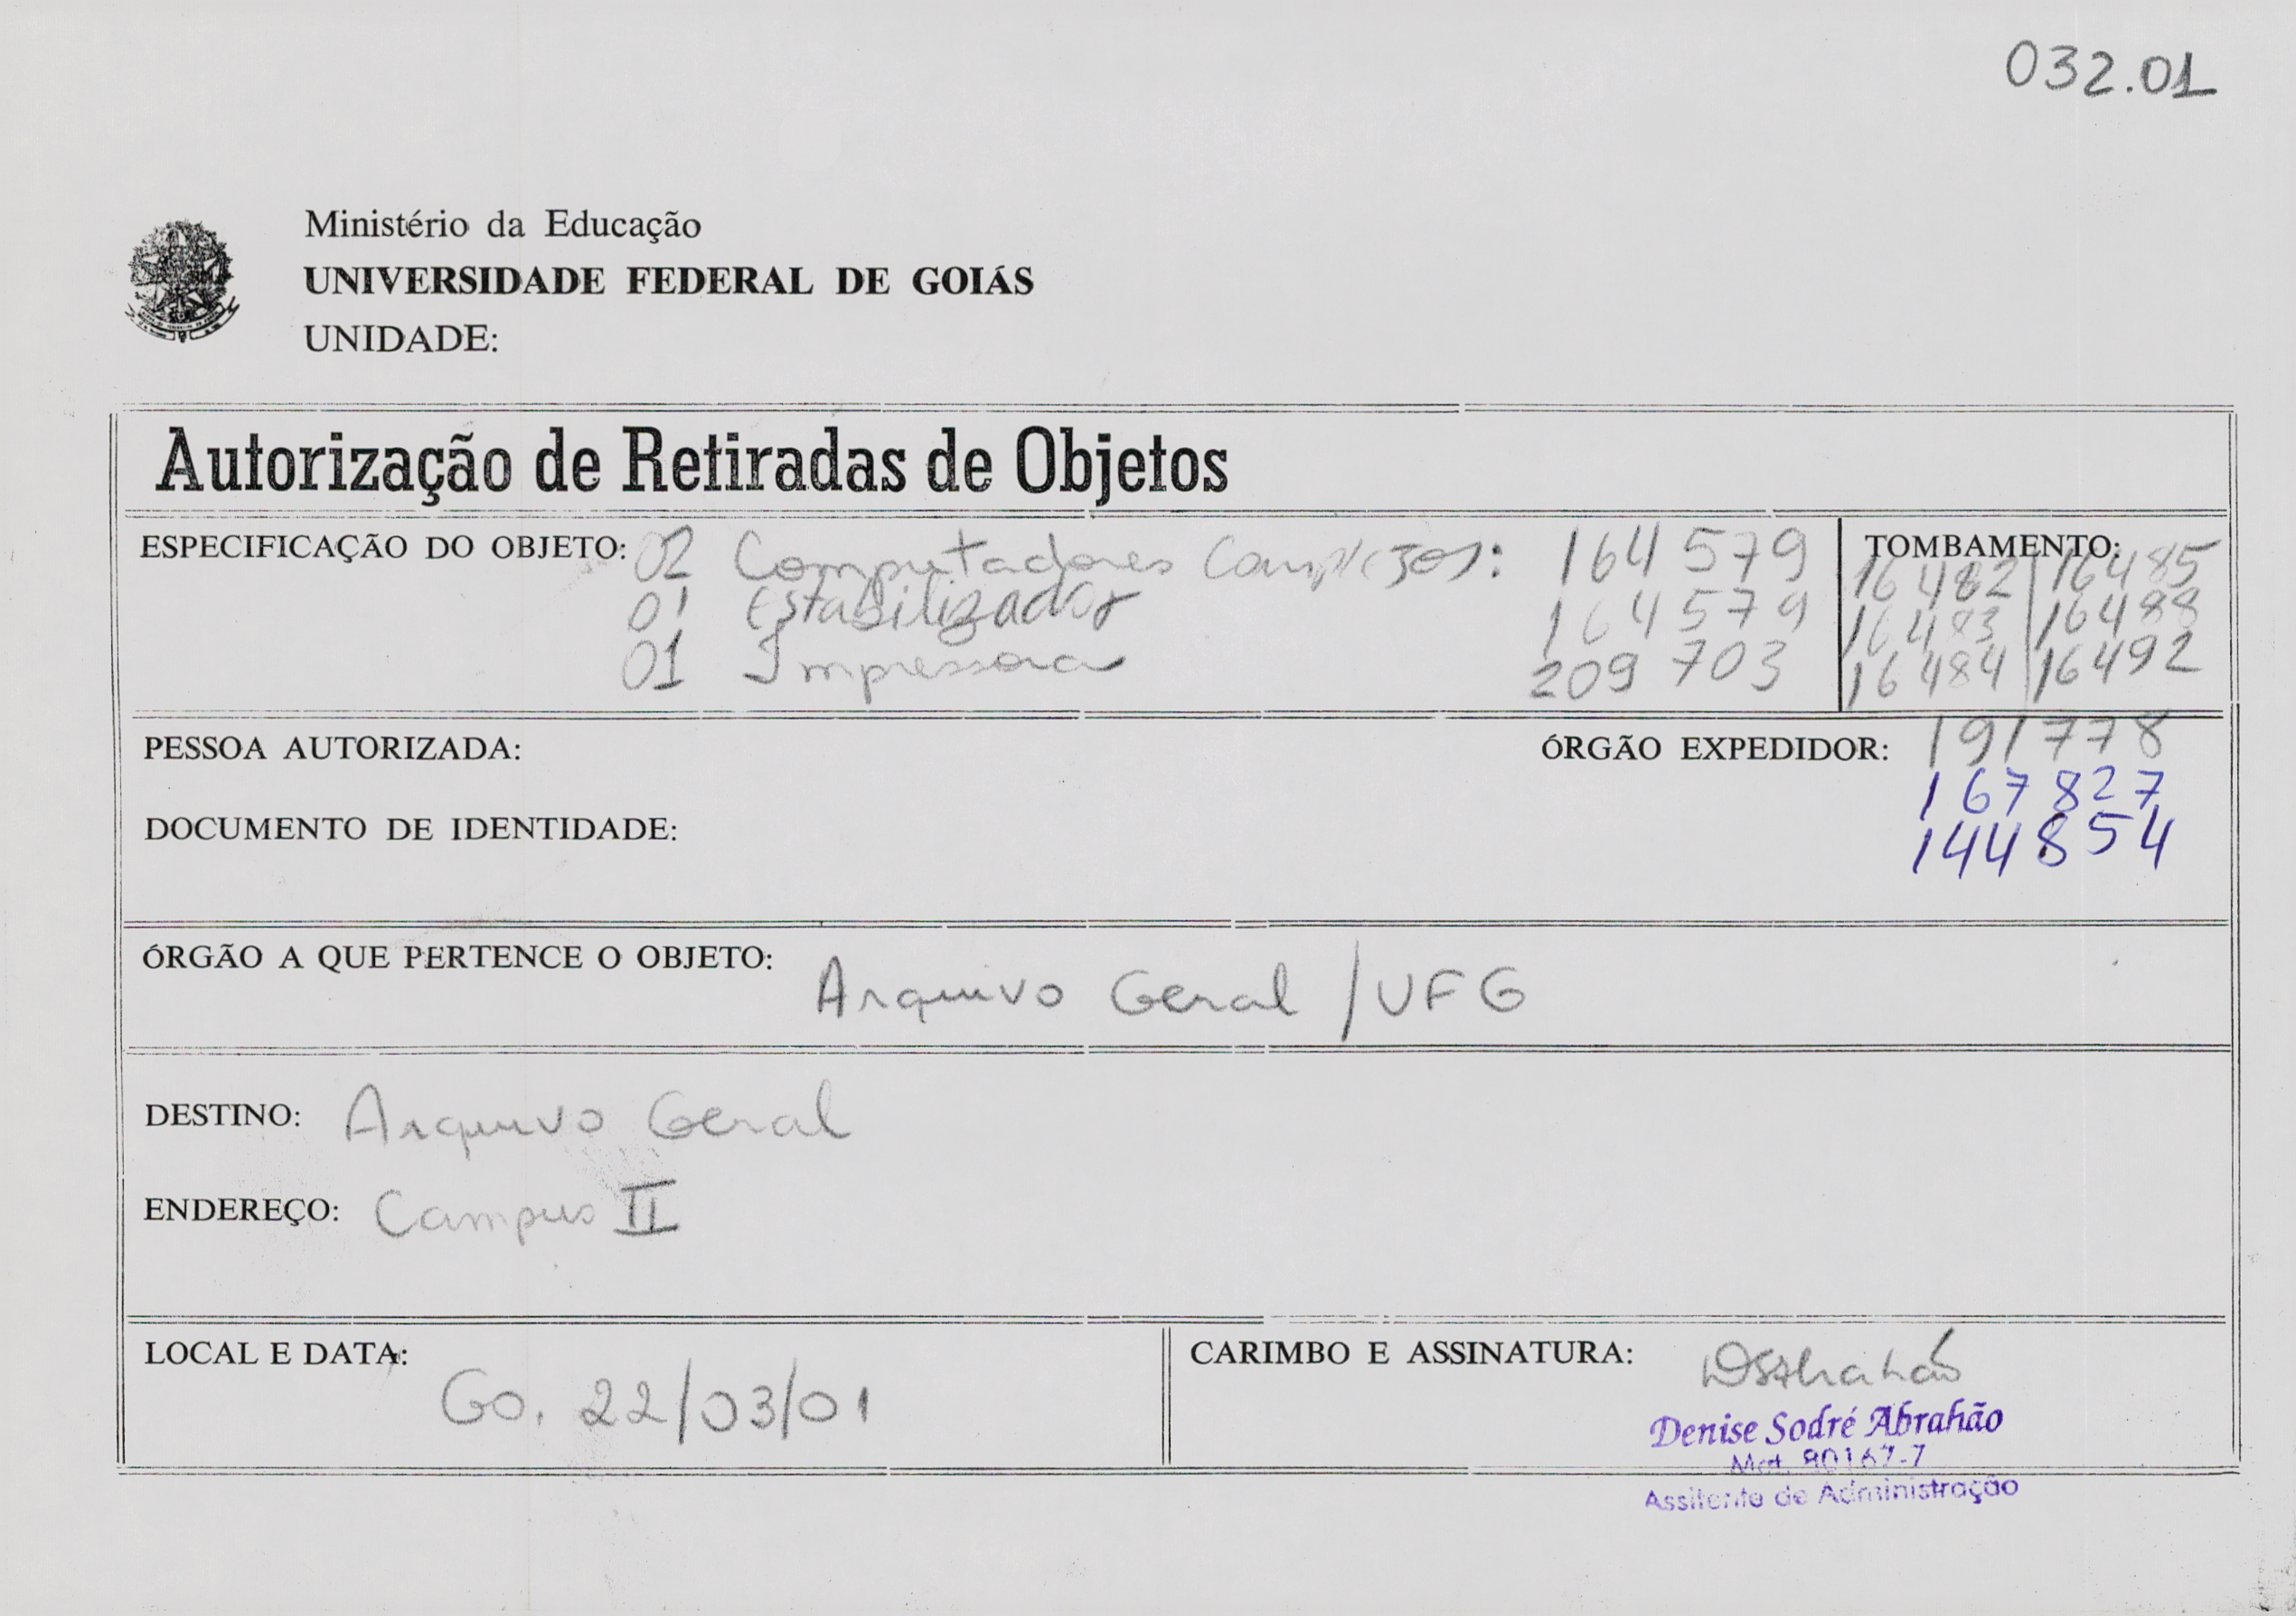 032.01
Ministério da Educação
UNIVERSIDADE FEDERAL DE GOIÁS
UNIDADE:
Autorização de Retiradas de Objetos
ESPECIFICAÇÃO DO OBJETO: 02 Computadores Completos: 164 579
01 Estabilizador 164 579
01 Impressora 209 703
TOMBAMENTO:
16482 | 16485
16483 | 16488
16484 | 16492
PESSOA AUTORIZADA:
ÓRGÃO EXPEDIDOR: 191778
167827
144854
DOCUMENTO DE IDENTIDADE:
ÓRGÃO A QUE PERTENCE O OBJETO: Arquivo Geral / UFG
DESTINO: Arquivo Geral
ENDEREÇO: Campus II
LOCAL E DATA: Go. 22/03/01
CARIMBO E ASSINATURA:
Denise Sodré Abrahão
Mat. 80167-7
Assitente de Administração